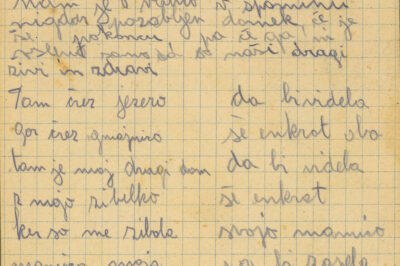 v spominu
nigdar spozabljen domek, če je
še pokoncu pa če ga, in
samo dá so naši dragi
živi in zdravi
Tam črez jezero
gor črez gmajnico
tam je moj dragi dom
z mojo zibelko
ker so me zibala
mamica moja
da bi videla
še enkrat oba
da bi videla
še enkrat
svojo mamico
bi